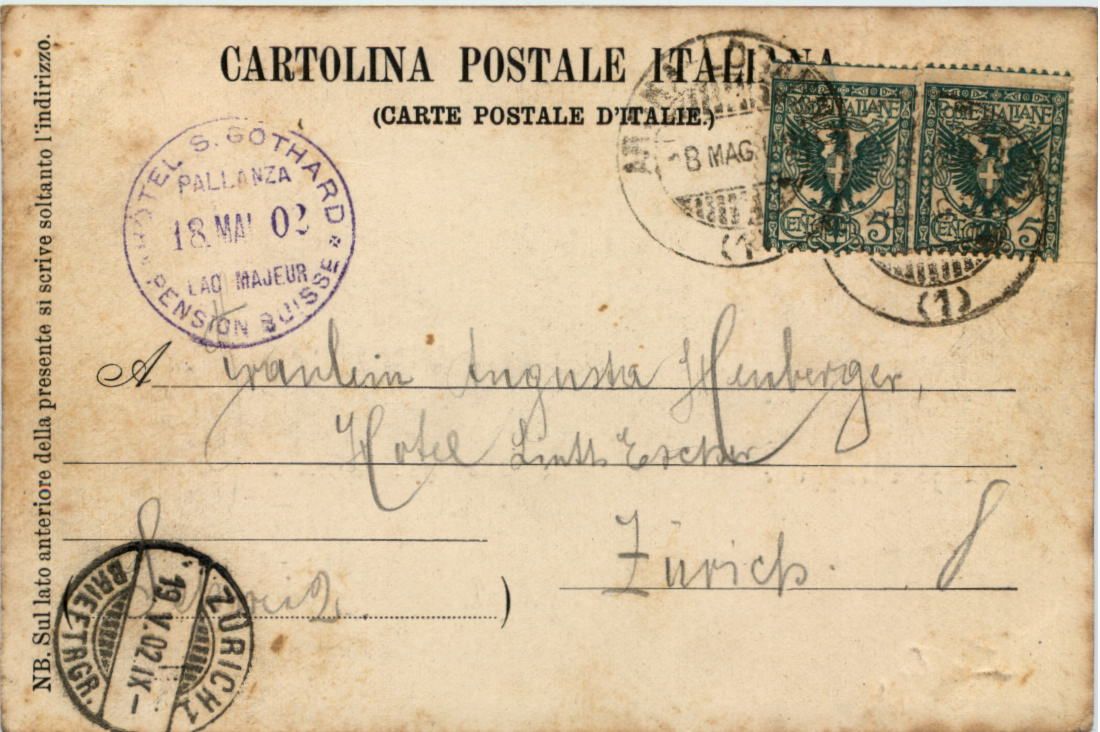 CARTOLINA POSTALE ITALIANA
(CARTE POSTALE D'ITALIE.)
NB. Sul lato anteriore della presente si scrive soltanto l'indirizzo.
HÔTEL S. GOTHARD
PALLANZA
18 MAI 02
LAC MAJEUR
PENSION SUISSE
8 MAG
(1)
POSTE ITALIANE
CENT 5
POSTE ITALIANE
CENT 5
A Fräulein Augusta Henberger,
Hotel Escher
Zürich.
Schweiz.
)
ZÜRICH 1
19.V.02.IX-
BRIEFTRGR.